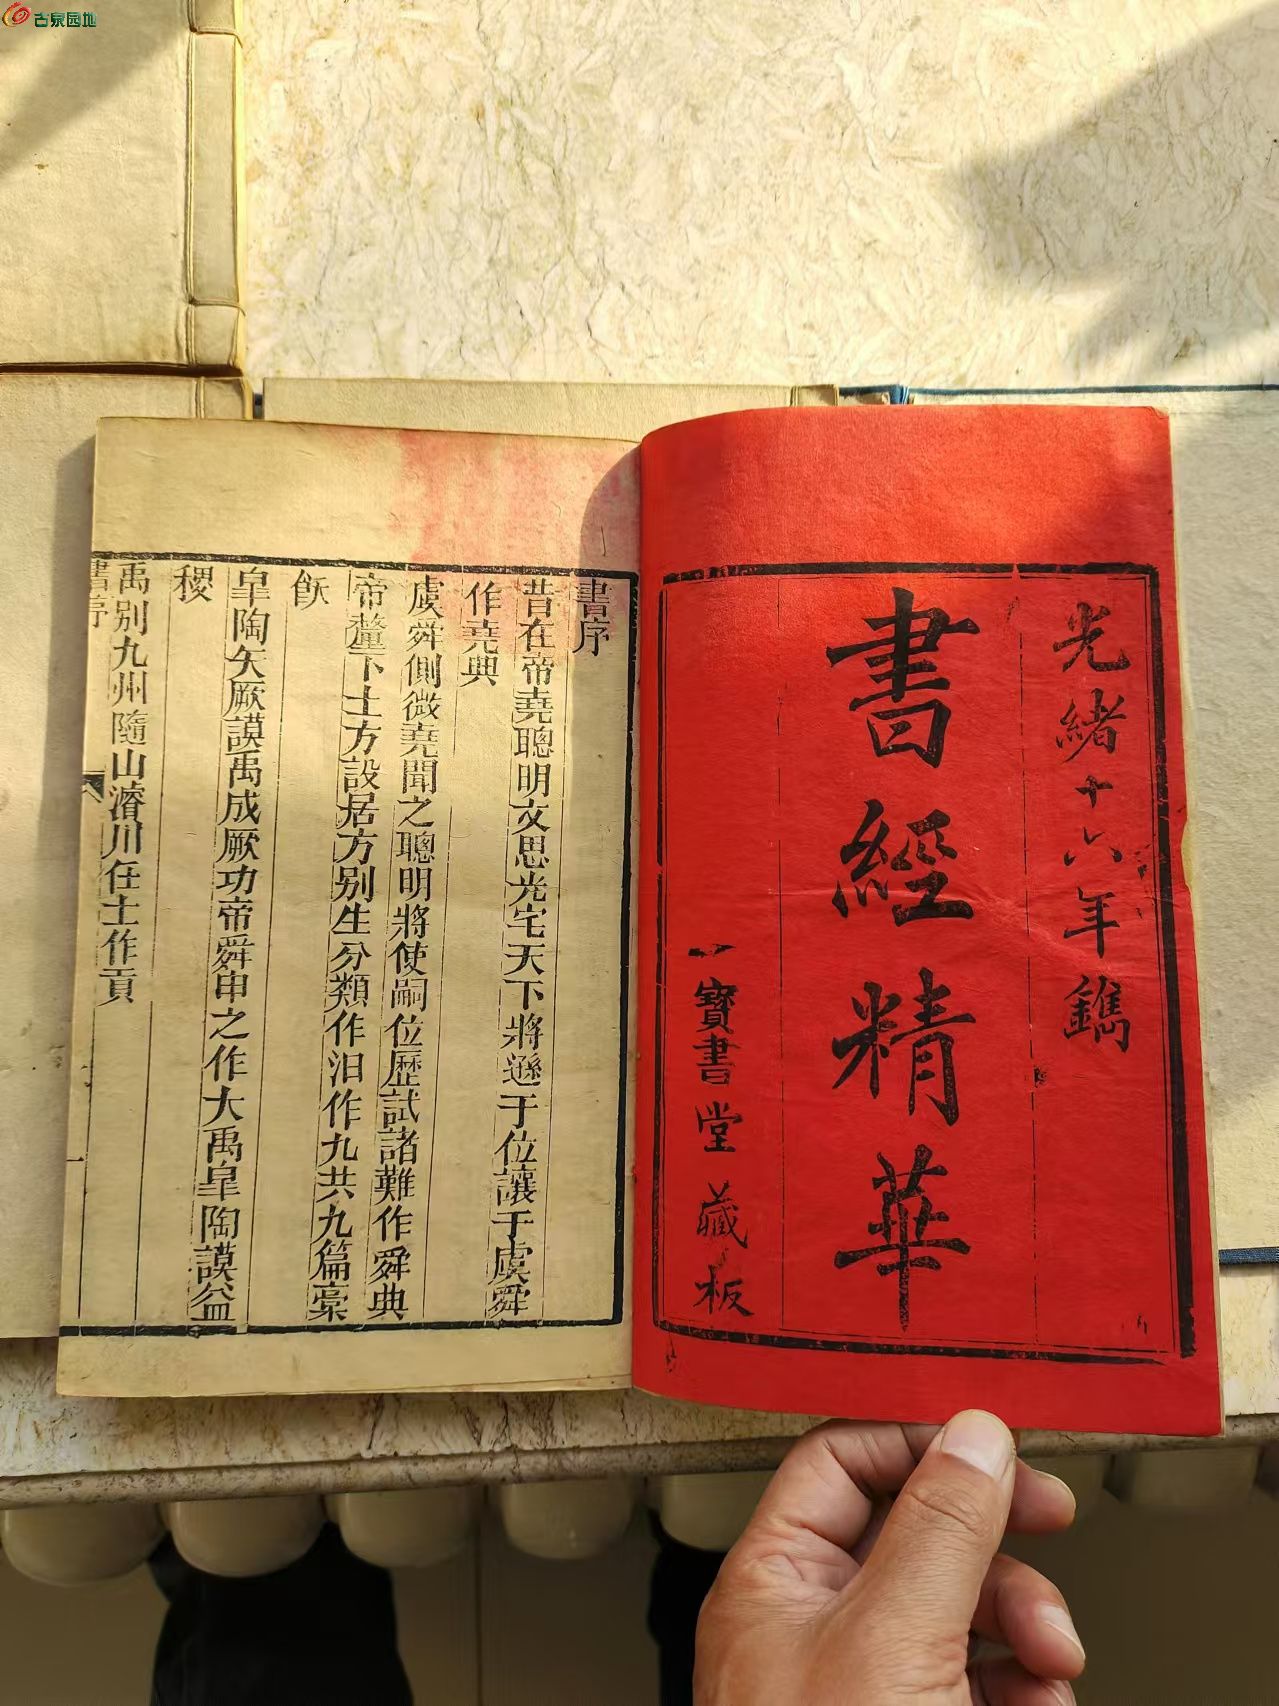 古泉园地
光緒十六年鐫
書經精華
寶書堂藏板
書序
昔在帝堯聰明文思光宅天下將遜于位讓于虞舜
作堯典
虞舜側微堯聞之聰明將使嗣位歷試諸難作舜典
帝釐下土方設居方別生分類作汩作九共九篇槀
飫
皐陶矢厥謨禹成厥功帝舜申之作大禹皐陶謨益
稷
禹別九州隨山濬川任土作貢
書序
一